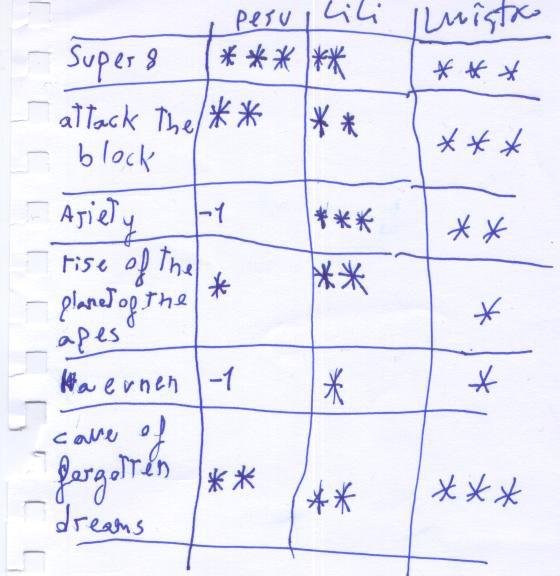 peru lili
Super 8 *** ** ***
attack the ** ** ***
block
Ariety -1 *** **
rise of the * ** *
planet og the
apes
Haevnen -1 * *
cave of ** ** ***
forgotten
dreams